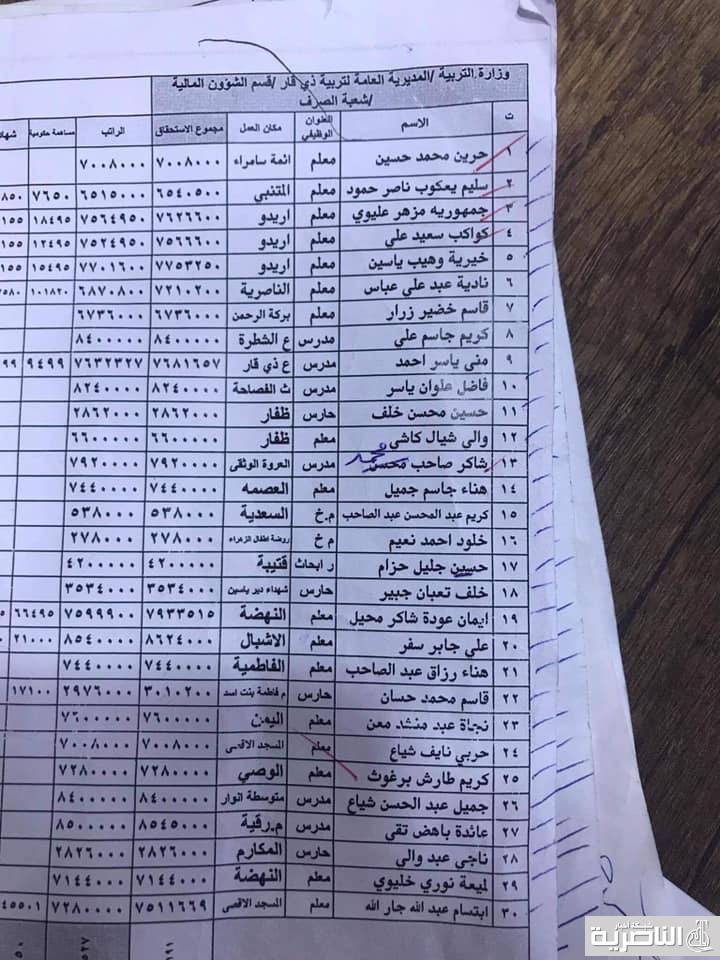 وزارة التربية /المديرية العامة لتربية ذي قار /قسم الشؤون المالية
/شعبة الصرف
ت الاسم العنوان الوظيفي مكان العمل مجموع الاستحقاق الراتب مساهمة حكومية شهاد
١ حرين محمد حسين معلم ائمة سامراء ٧٠٠٨٠٠٠ ٧٠٠٨٠٠٠
٢ سليم يعكوب ناصر حمود معلم المتنبي ٦٥٤٠٥٠٠ ٦٥١٥٠٠٠ ٧٦٥٠ ٨٥٠
٣ جمهوريه مزهر عليوي معلم اريدو ٧٦٢٦٦٠٠ ٧٥٦٤٩٥٠ ١٨٤٩٥ ١٥٥
٤ كواكب سعيد علي معلم اريدو ٧٥٦٦٦٠٠ ٧٥٢٤٩٥٠ ١٢٤٩٥ ١٥٥
٥ خيرية وهيب ياسين معلم اريدو ٧٧٥٣٢٥٠ ٧٧٠١٦٠٠ ١٥٤٩٥ ١٥٥
٦ نادية عبد علي عباس معلم الناصرية ٧٢١٠٢٠٠ ٦٨٧٠٨٠٠ ١٠١٨٢٠ ٢٥٨٠
٧ قاسم خضير زرار معلم بركة الرحمن ٦٧٣٦٠٠٠ ٦٧٣٦٠٠٠
٨ كريم جاسم علي مدرس ع الشطرة ٨٤٠٠٠٠٠ ٨٤٠٠٠٠٠
٩ منى ياسر احمد مدرس ع ذي قار ٧٦٨١٦٥٧ ٧٦٣٢٣٢٧ ٩٤٩٩ ٩٩
١٠ فاضل علوان ياسر مدرس ث الفصاحة ٨٢٤٠٠٠٠ ٨٢٤٠٠٠٠
١١ حسين محسن خلف حارس ظفار ٢٨٦٢٠٠٠ ٢٨٦٢٠٠٠
١٢ والي شيال كاشي معلم ظفار ٦٦٠٠٠٠٠ ٦٦٠٠٠٠٠
١٣ شاكر صاحب محسن محمد مدرس العروة الوثقى ٧٩٢٠٠٠٠ ٧٩٢٠٠٠٠
١٤ هناء جاسم جميل معلم العصمه ٧٤٤٠٠٠٠ ٧٤٤٠٠٠٠
١٥ كريم عبد المحسن عبد الصاحب م.خ السعدية ٥٣٨٠٠٠ ٥٣٨٠٠٠
١٦ خلود احمد نعيم م خ روضة اطفال الزهراء ٢٧٨٠٠٠ ٢٧٨٠٠٠
١٧ حسين جليل حزام ر ابحاث قتيبة ٤٢٠٠٠٠٠ ٤٢٠٠٠٠٠
١٨ خلف تعبان جبير حارس شهداء دير ياسين ٣٥٣٤٠٠٠ ٣٥٣٤٠٠٠
١٩ ايمان عودة شاكر محيل معلم النهضة ٧٩٣٣٥١٥ ٧٥٩٩٩٠٠ ٦٦٤٩٥
٢٠ علي جابر سفر معلم الاشبال ٨٦٢٤٠٠٠ ٨٥٤٠٠٠٠ ٢١٠٠٠
٢١ هناء رزاق عبد الصاحب معلم الفاطمية ٧٤٤٠٠٠٠ ٧٤٤٠٠٠٠
٢٢ قاسم محمد حسان حارس م فاطمة بنت اسد ٣٠١٠٢٠٠ ٢٩٧٦٠٠٠ ١٧١٠٠
٢٣ نجاة عبد منشد معن معلم اليمن ٧٦٠٠٠٠٠ ٧٦٠٠٠٠٠
٢٤ حربي نايف شياع معلم المسجد الاقصى ٧٠٠٨٠٠٠ ٧٠٠٨٠٠٠
٢٥ كريم طارش برغوث معلم الوصي ٧٢٨٠٠٠٠ ٧٢٨٠٠٠٠
٢٦ جميل عبد الحسن شياع مدرس متوسطة انوار ٨٤٠٠٠٠٠ ٨٤٠٠٠٠٠
٢٧ عائدة باهض تقي مدرس م.رقية ٨٥٤٥٠٠٠ ٨٥٠٠٠٠٠
٢٨ ناجي عبد والي حارس المكارم ٢٨٢٦٠٠٠ ٢٨٢٦٠٠٠
٢٩ لميعة نوري خليوي معلم النهضة ٧١٤٤٠٠٠ ٧١٤٤٠٠٠
٣٠ ابتسام عبد الله جار الله معلم المسجد الاقصى ٧٥١١٦٦٩ ٧٢٨٠٠٠٠ ٤٥٥٠١
١٩١ ٥٢٧ ٥٠
شبكة اخبار الناصرية